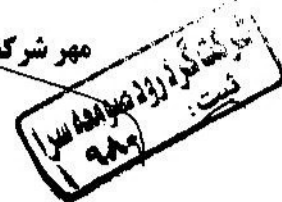 مهر شرکت
شرکت گرد رود صومعه سرا
ثبت: ۹۸۰